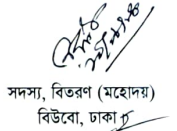 সদস্য, বিতরণ (মহোদয়)
বিউবো, ঢাকা